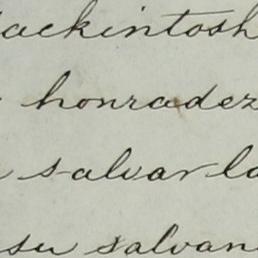 Mackintosh
honradez
salvar la
su salvan